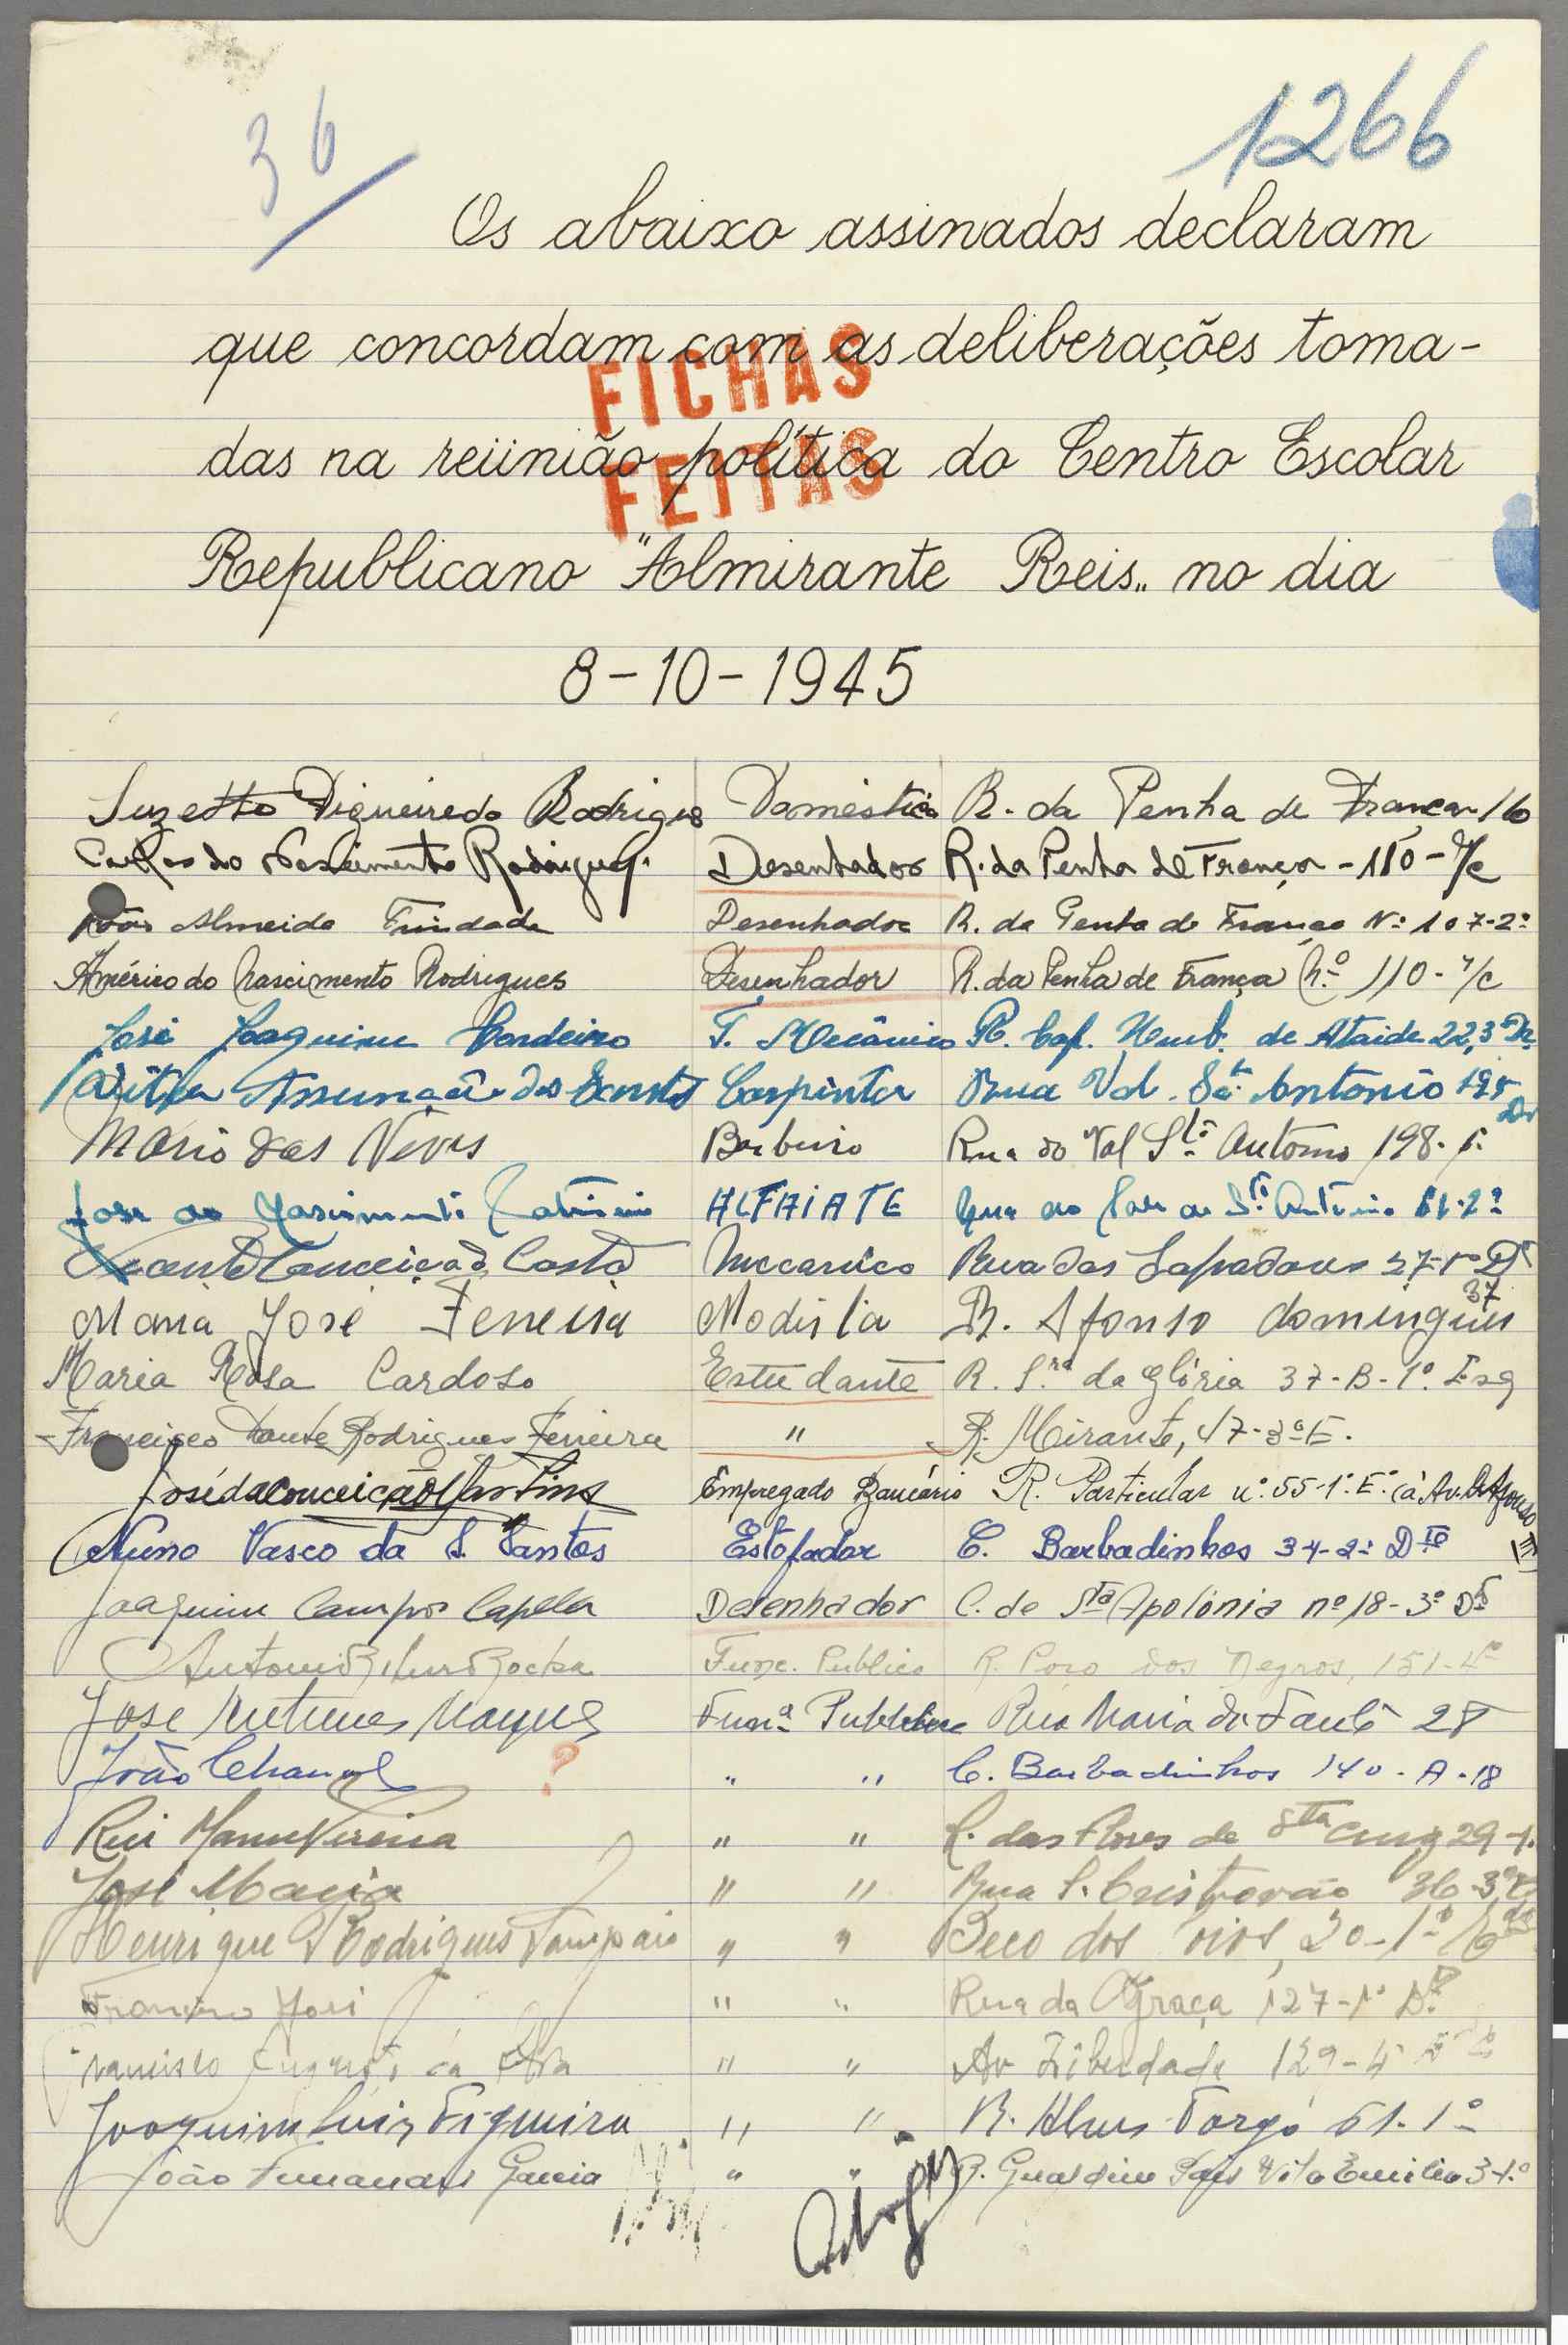 36
1266
Os abaixo assinados declaram
que concordam com as deliberações toma-
das na reünião política do Centro Escolar
Republicano "Almirante Reis„ no dia
FICHAS
FEITAS
8-10-1945
Suzette Figueiredo Rodrigues Doméstica R. da Penha de França
Carlos do Nascimento Rodrigues Desenhador R. da Penha de França - 110 - r/c
Almeida Trindade Desenhador R. da Penha de França Nº 107-2º
Américo do Nascimento Rodrigues Desenhador R. da Penha de França nº 110 - r/c
José Joaquim Cordeiro T. Mecânico R. Cap. Humb. de Ataide 22,3º
Assunção dos Santos Carpinter Rua Val Stº António
Mário das Neves Barbeiro Rua do Val Stº António 198-
José do Nascimento ALFAIATE Stº António
Vicente Conceição Costa Mecanico Rua dos Sapadores 27-
Maria José Ferreira Modista R. Afonso domingues 37
Maria Rosa Cardoso Estudante R. Srª da Glória 37-B-1º Esq
Francisco Dante Rodrigues Ferreira " R. Mirante, 47-3º E.
José da Conceição Martins Empregado Bancário R. Particular nº 55-1º E. (à Av. D. Afonso III)
Nuno Vasco da S. Santos Estofador C. Barbadinhos 34-2º Dto
Joaquim Campos Capela Desenhador C. de Stª Apolónia nº 18-3º Dº
Rocha Func. Publico R. Poço dos Negros, 151-4º
José Antunes Publico Rua Maria da Fonte 28
João ? " " C. Barbadinhos 140-A-18
Rui " " R. das Flores de Sta Cruz 29-1.
José Maria " " Rua S. Cristovão 36-3º
Henrique Rodrigues Sampaio " " Beco dos 20-1º
José " " Rua da Graça 127-1º D.
" " Av Liberdade 129-4
Joaquim Luiz Figueira " " R. 61-1º
João Fernandes Garcia " " R. Gualdim Pais Vila Emilia